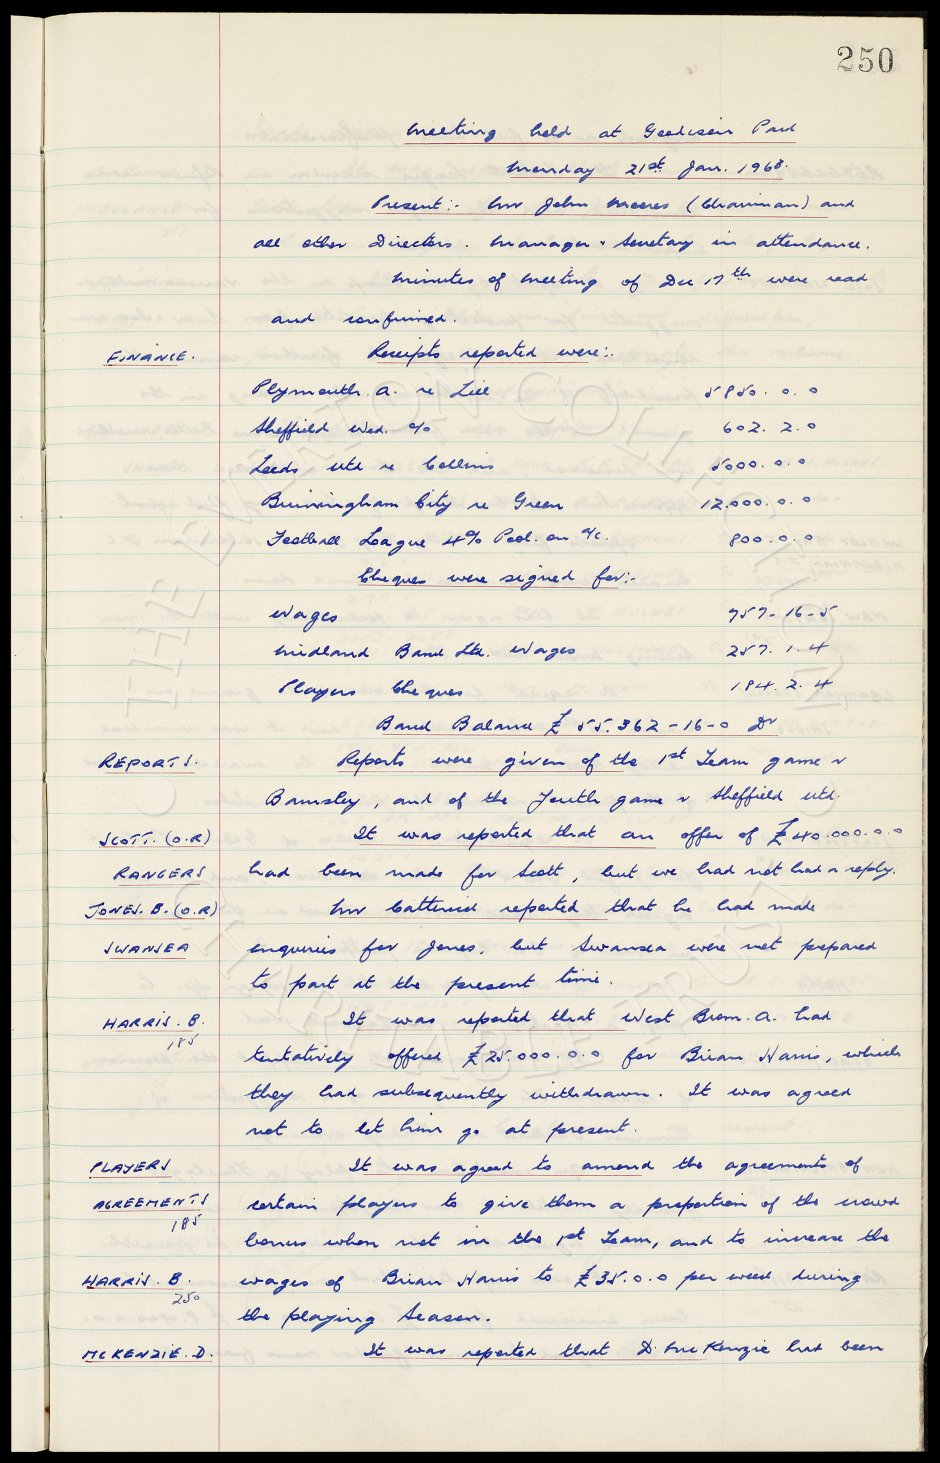 250
Meeting held at Goodison Park
Monday 21st Jan. 1963.
Present:- Mr John Moores (Chairman) and
all other Directors. Manager & Secretary in attendance.
Minutes of Meeting of Dec 17th were read
and confirmed.
FINANCE. Receipts reported were:.
Plymouth. A. re Lill 5850. 0. 0
Sheffield Wed. % 602. 2. 0
Leeds Utd re Collins 5000. 0. 0
Birmingham City re Green 12.000. 0. 0
Football League 4% Pool. on a/c. 800. 0. 0
Cheques were signed for:-
Wages 757-16-5
Midland Bank Ltd. Wages 257. 1. 4
Players Cheques 184. 2. 4
Bank Balance £55.362-16-0 Dr
REPORTS. Reports were given of the 1st Team game v
Barnsley, and of the Youth game v Sheffield Utd.
SCOTT. (O.R) It was reported that an offer of £40.000.0.0
RANGERS had been made for Scott, but we had not had a reply.
JONES. B. (O.R) Mr Catterick reported that he had made
SWANSEA enquiries for Jones, but Swansea were not prepared
to part at the present time.
HARRIS. B. It was reported that West Brom. A. had
185
tentatively offered £25.000.0.0 for Brian Harris, which
they had subsequently withdrawn. It was agreed
not to let him go at present.
PLAYERS It was agreed to amend the agreements of
AGREEMENTS certain players to give them a proportion of the crowd
185
bonus when not in the 1st Team, and to increase the
HARRIS. B. wages of Brian Harris to £35.0.0 per week during
250
the playing Season.
MCKENZIE. D. It was reported that D. McKenzie had been
THE EVERTON COLLECTION
CHARITABLE TRUST